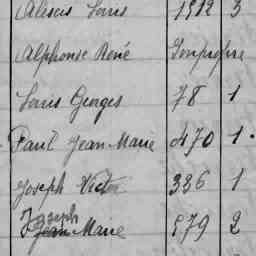 Louis 1912 3
Alphonse René
Louis Georges 78 1
Paul Jean Marie 470 1
Joseph Victor 336 1
Joseph
Jean Marie 579 2